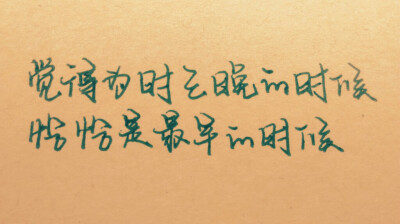 觉得为时已晚的时候
恰恰是最早的时候